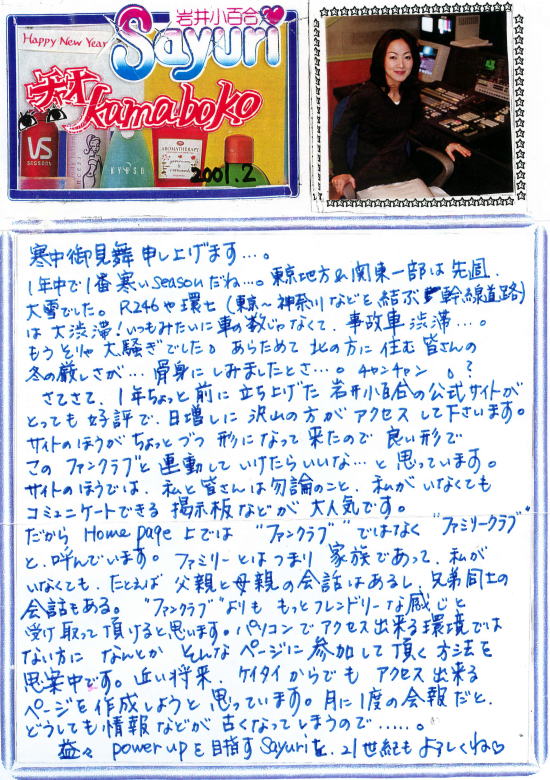 岩井小百合
Happy New Year
Sayuri
kamaboko
VS
SASSOON
KYPSO
AROMATHERAPY
2001.2
寒中御見舞申し上げます…。
1年中で1番寒いseasonだね…。東京地方&関東一部は先週、
大雪でした。R246や環七(東京〜神奈川などを結ぶ幹線道路)
は大渋滞!いつもみたいに車の数じゃなくて、事故車渋滞…。
もうそりゃ大騒ぎでした。あらためて北の方に住む皆さんの
冬の厳しさが…骨身にしみましたとさ…。チャンチャン。?
さてさて、1年ちょっと前に立ち上げた岩井小百合の公式サイトが
とっても好評で、日増しに沢山の方がアクセスして下さいます。
サイトのほうがちょっとづつ形になって来たので良い形で
このファンクラブと連動していけたらいいな…と思っています。
サイトのほうでは、私と皆さんは勿論のこと、私がいなくても
コミュニケートできる掲示板などが大人気です。
だからHome page上では"ファンクラブ"ではなく"ファミリークラブ"
と、呼んでいます。ファミリーとはつまり家族であって、私が
いなくても、たとえば父親と母親の会話はあるし、兄弟同士の
会話もある。"ファンクラブ"よりももっとフレンドリーな感じと
受け取って頂けると思います。パソコンでアクセス出来る環境では
ない方になんとかそんなページに参加して頂く方法を
思案中です。近い将来、ケイタイからでもアクセス出来る
ページを作成しようと思っています。月に1度の会報だと、
どうしても情報などが古くなってしまうので……。
益々power upを目指すSayuriを、21世紀もよろしくね♡